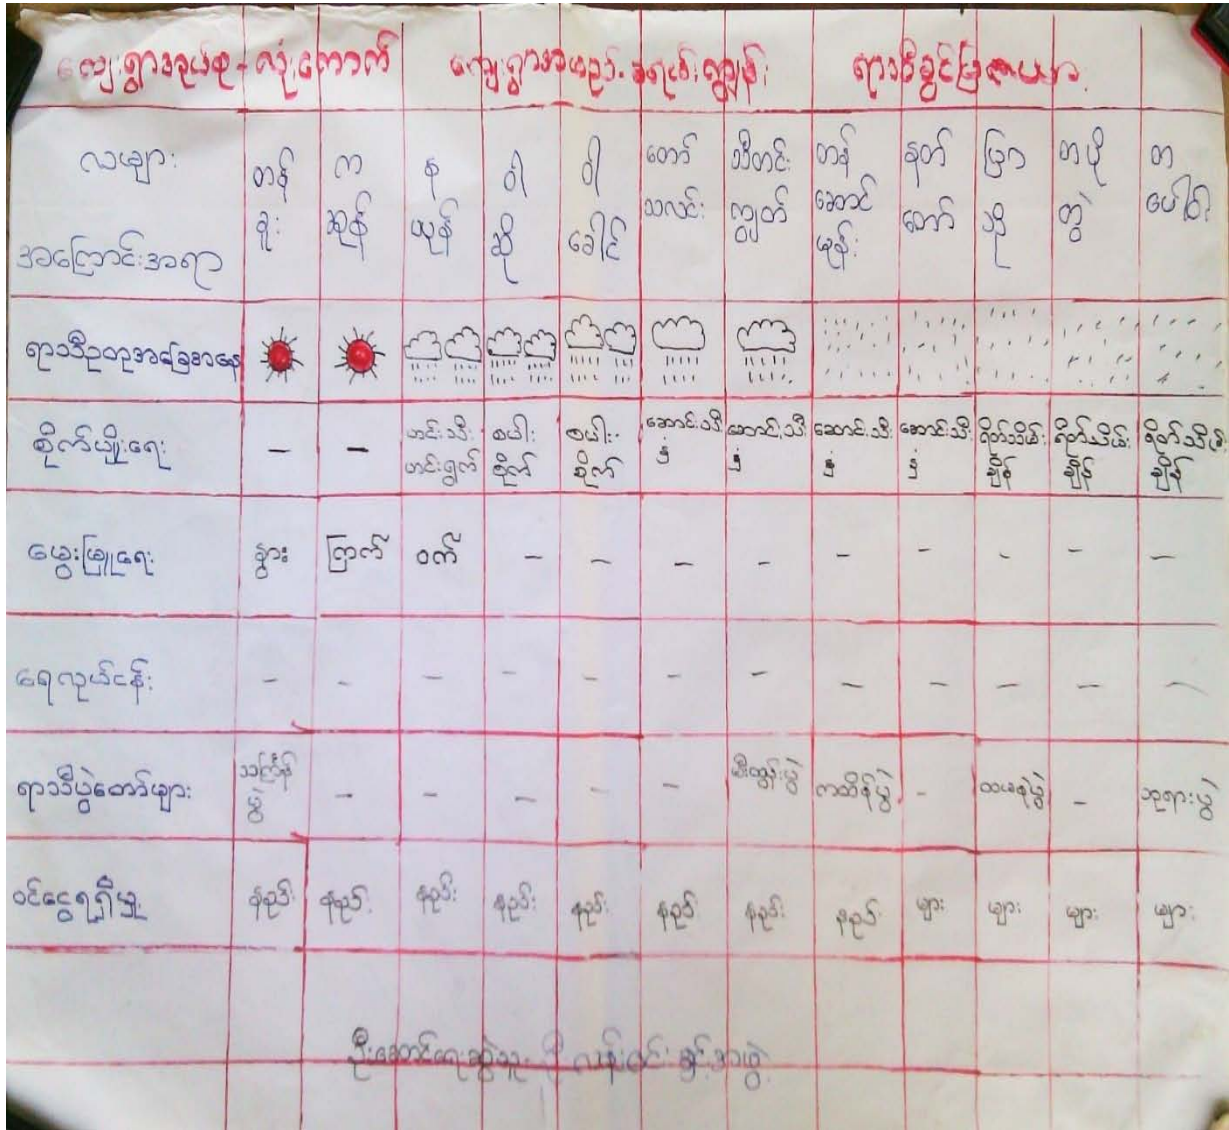 ကျေးရွာအုပ်စု - လုံးတောက် ကျေးရွာအမည် - ခရမ်းကျွန်း ရာသီခွင်ပြဇယား
လများ တန်ခူး ကဆုန် နယုန် ဝါဆို ဝါခေါင် တော်သလင်း သီတင်းကျွတ် တန်ဆောင်မုန်း နတ်တော် ပြာသို တပို့တွဲ တပေါင်း
အကြောင်းအရာ
ရာသီဥတုအခြေအနေ
စိုက်ပျိုးရေး - - ဟင်းသီးဟင်းရွက် စပါးစိုက် စပါးစိုက် ဆောင်းသီးနှံ ဆောင်းသီးနှံ ဆောင်းသီးနှံ ဆောင်းသီးနှံ ရိတ်သိမ်းချိန် ရိတ်သိမ်းချိန် ရိတ်သိမ်းချိန်
မွေးမြူရေး နွား ကြက် ဝက် - - - - - - - - -
ရေလုပ်ငန်း - - - - - - - - - - - -
ရာသီပွဲတော်များ သင်္ကြန်ပွဲ - - - - - မီးထွန်းပွဲ ကထိန်ပွဲ - ထမနဲပွဲ - ဘုရားပွဲ
ဝင်ငွေရရှိမှု နည်း နည်း နည်း နည်း နည်း နည်း နည်း နည်း များ များ များ များ
ဦးဆောင်ရေးဆွဲသူ